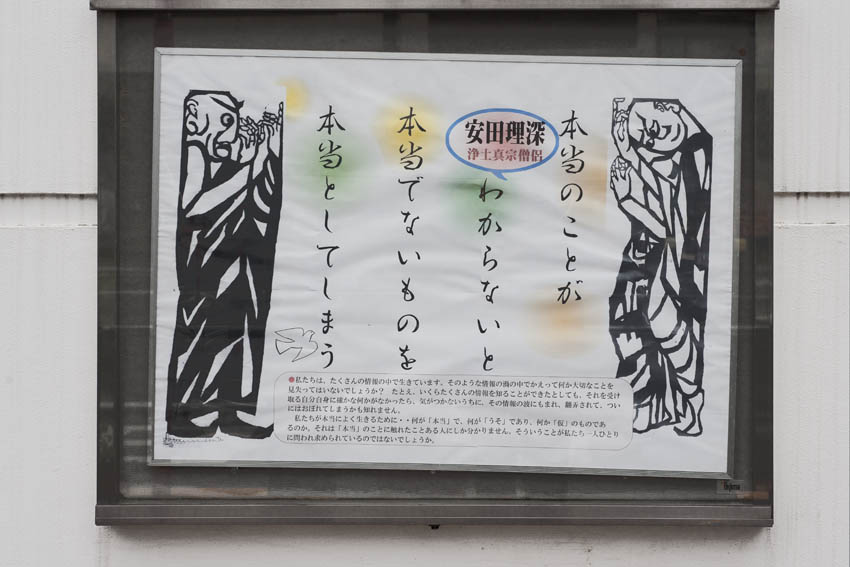 本当のことが
わからないと
本当でないものを
本当としてしまう
安田理深
浄土真宗僧侶
●私たちは、たくさんの情報の中で生きています。そのような情報の渦の中でかえって何か大切なことを
見失ってはいないでしょうか? たとえ、いくらたくさんの情報を知ることができたとしても、それを受け
取る自分自身に確かな何かがなかったら、気がつかないうちに、その情報の波にもまれ、翻弄されて、つい
にはおぼれてしまうかも知れません。
私たちが本当によく生きるために・・何が「本当」で、何が「うそ」であり、何が「仮」のものであ
るのか。それは「本当」のことに触れたことある人にしか分かりません。そういうことが私たち一人ひとり
に問われ求められているのではないでしょうか。